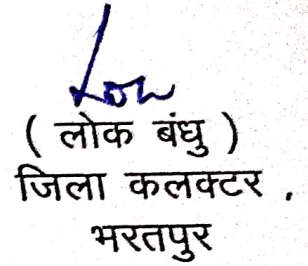 ( लोक बंधु )
जिला कलक्टर .
भरतपुर